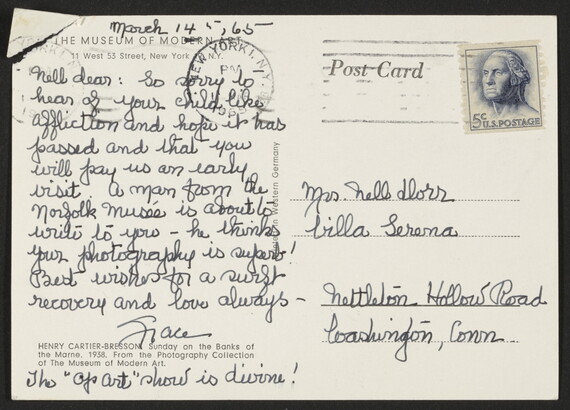 March 14th, 65
THE MUSEUM OF MODERN ART
11 West 53 Street, New York N.Y.
Nell dear: So sorry to
hear of your child like
affliction and hope it has
passed and that you
will pay us an early
visit. A man from the
Norfolk Museé is about to
write to you – he thinks
your photography is superb!
Best wishes for a swift
recovery and love always –
Grace
HENRY CARTIER-BRESSON: Sunday on the Banks of
the Marne. 1938. From the Photography Collection
of The Museum of Modern Art.
The "Op Art" show is divine!
in Western Germany
NEW YORK, N.Y.
PM
Post Card
5c U.S. POSTAGE
Mrs. Nell Dorr
Villa Serena
Nettleton Hollow Road
Washington, Conn